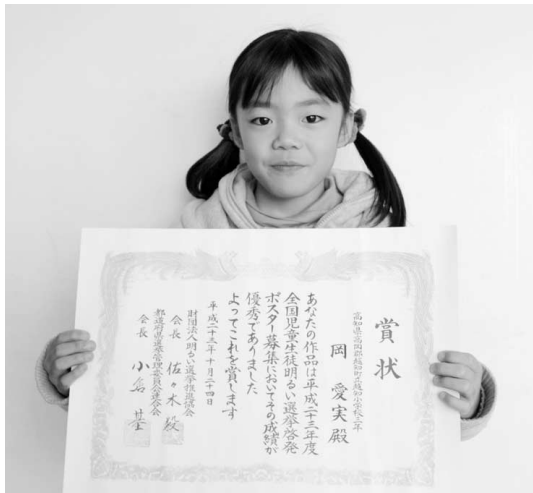 賞状
高知県高岡郡越知町立越知小学校三年
岡 愛実 殿
あなたの作品は平成二十三年度
全国児童生徒明るい選挙啓発
ポスター募集においてその成績が
優秀でありました
よってこれを賞します
平成二十三年十月二十四日
財団法人明るい選挙推進協会
会長 佐々木 毅
都道府県選挙管理委員会連合会
会長 小